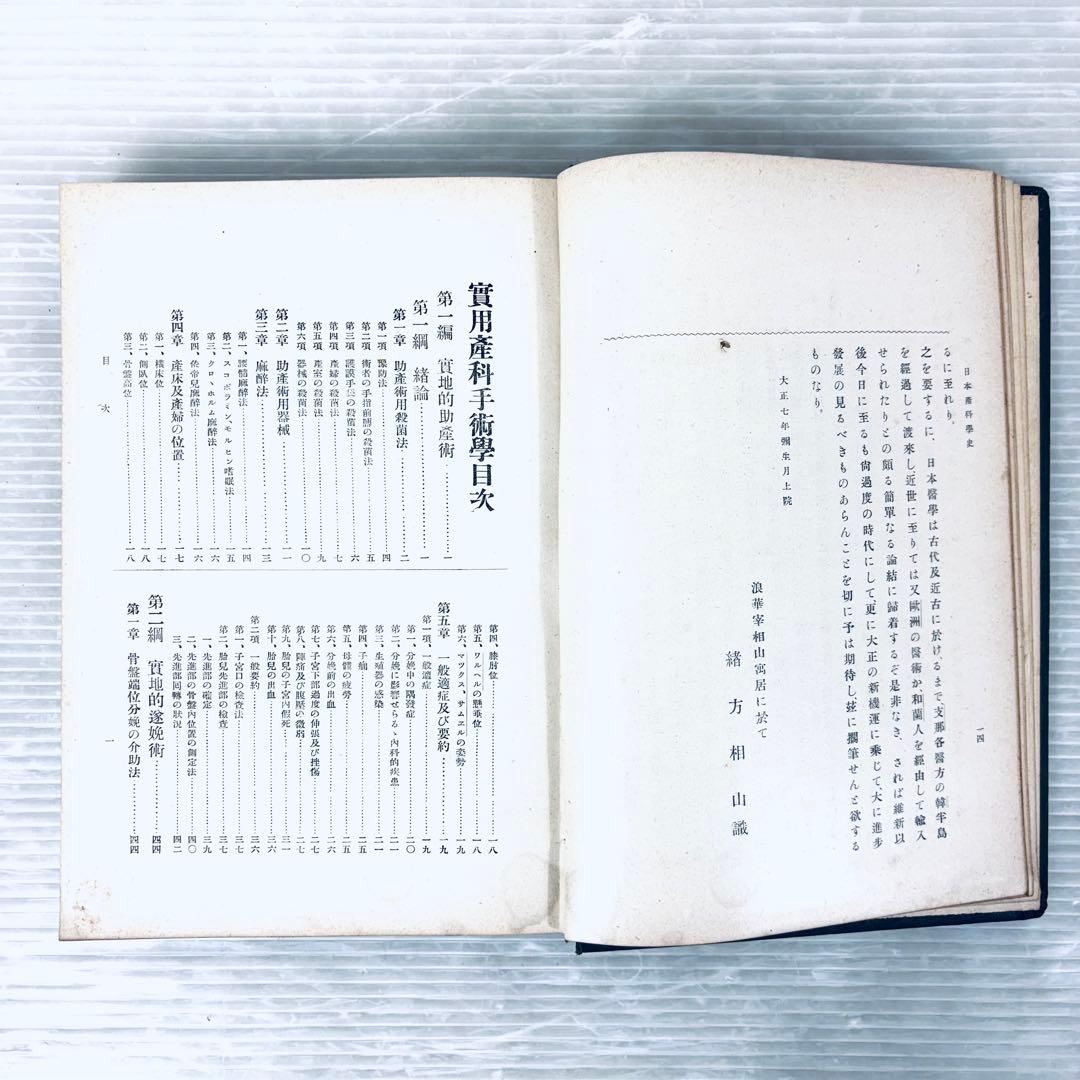 日本產科學史
一四
るに至れり。
之を要するに、日本醫學は古代及近古に於けるまで、支那各醫方の韓半島
を經過して渡來し、近世に至りては又歐洲の醫術か、和蘭人を經由して輸入
せられたりとの頗る簡單なる論結に歸着するぞ是非なき、されば維新以
後今日に至るも尙過度の時代にして、更に大正の新機運に乘じて、大に進步
發展の見るべきものあらんことを切に予は期待し、玆に擱筆せんと欲する
ものなり。
大正七年彌生月上院
浪華宰相山寓居に於て
緖方相山識
實用產科手術學目次
第一編 實地的助產術…………一
第一綱 緖論…………一
第一章 助產術用殺菌法…………二
第一項 豫防法…………四
第二項 術者の手指前膊の殺菌法…………五
第三項 護謨手套の殺菌法…………六
第四項 產婦の殺菌法…………七
第五項 產室の殺菌法…………九
第六項 器械の殺菌法…………一〇
第二章 助產術用器械…………一一
第三章 麻醉法…………一三
第一、腰髓麻醉法…………一四
第二、スコポラミン、モルヒン嗜眠法…………一五
第三、クロヽホルム麻醉法…………一六
第四、依帝兒麻醉法…………一六
第四章 產床及產婦の位置…………一七
第一、橫床位…………一七
第二、側臥位…………一八
第三、骨盤高位…………一八
第四、膝肘位…………一八
第五、ワルヘルの懸垂位…………一八
第六、マックス、サムエルの姿勢…………一九
第五章 一般適症及び要約…………一九
第一項、一般適症…………一九
第一、分娩中の偶發症…………二〇
第二、分娩に影響せらるゝ內科的疾患…………二一
第三、生殖器の感染…………二一
第四、子癇…………二三
第五、母體の疲勞…………二五
第六、分娩前の出血…………二五
第七、子宮下部過度の伸張及び挫傷…………二六
第八、陣痛及び腹壓の微弱…………二七
第九、胎兒の子宮內假死…………三一
第十、胎兒の出血…………三六
第二項 一般要約…………三六
第一、子宮口の檢査法…………三七
第二、胎兒先進部の檢査…………三七
一、先進部の確定…………三九
二、先進部の骨盤內位置の測定法…………四〇
三、先進部回轉の狀況…………四二
第二綱 實地的遂娩術…………四四
第一章 骨盤端位分娩の介助法…………四四
目次
一